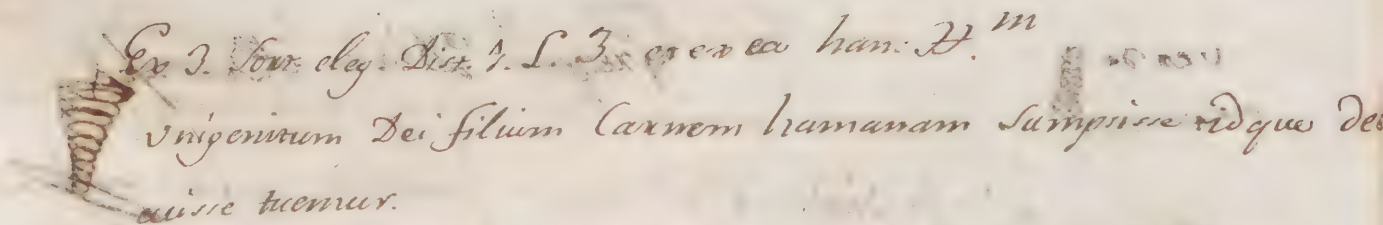 Ex 3. Sour eleg. Dist. 1. L. 3. et ex ea han: H.m
Vnigenitum Dei filium Carnem humanam Sumpsisse idque de
cuisse tuemur.